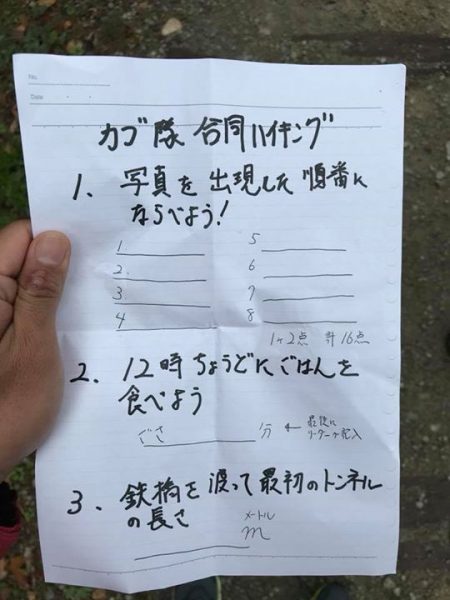 No.
Date
カブ隊 合同ハイキング
1. 写真を出現した順番に
ならべよう!
1.
2.
3
4
5
6
7
8
1ヶ2点 計16点
2. 12時ちょうどにごはんを
食べよう
ごさ 分 ← 最後に
リーダーが記入
3. 鉄橋を渡って最初のトンネル
の長さ
メートル
m